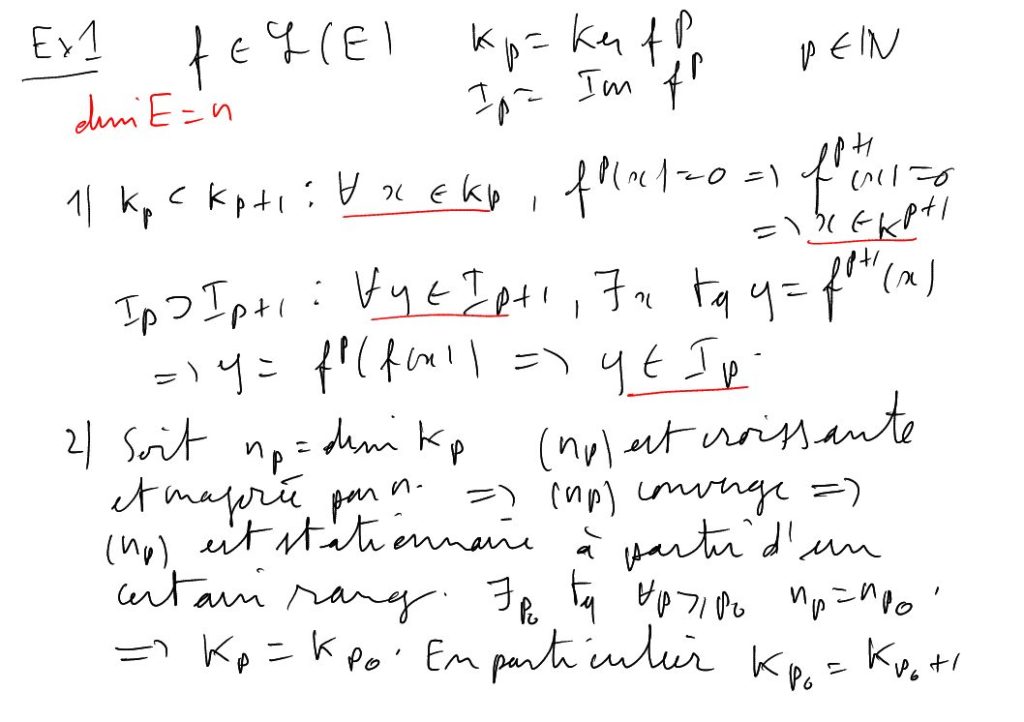 Ex1 f ∈ ℒ(E) K_p = Ker f^p p ∈ ℕ
dim E = n I_p = Im f^p
1) K_p ⊂ K_{p+1} : ∀ x ∈ K_p , f^p(x) = 0 => f^{p+1}(x) = 0
=> x ∈ K^{p+1}
I_p ⊃ I_{p+1} : ∀ y ∈ I_{p+1} , ∃ x tq y = f^{p+1}(x)
=> y = f^p(f(x)) => y ∈ I_p.
2) Soit n_p = dim K_p (n_p) est croissante
et majorée par n. => (n_p) converge =>
(n_p) est stationnaire à partir d'un
certain rang. ∃ p_0 tq ∀ p ≥ p_0 n_p = n_{p_0}.
=> K_p = K_{p_0}. En particulier K_{p_0} = K_{p_0+1}